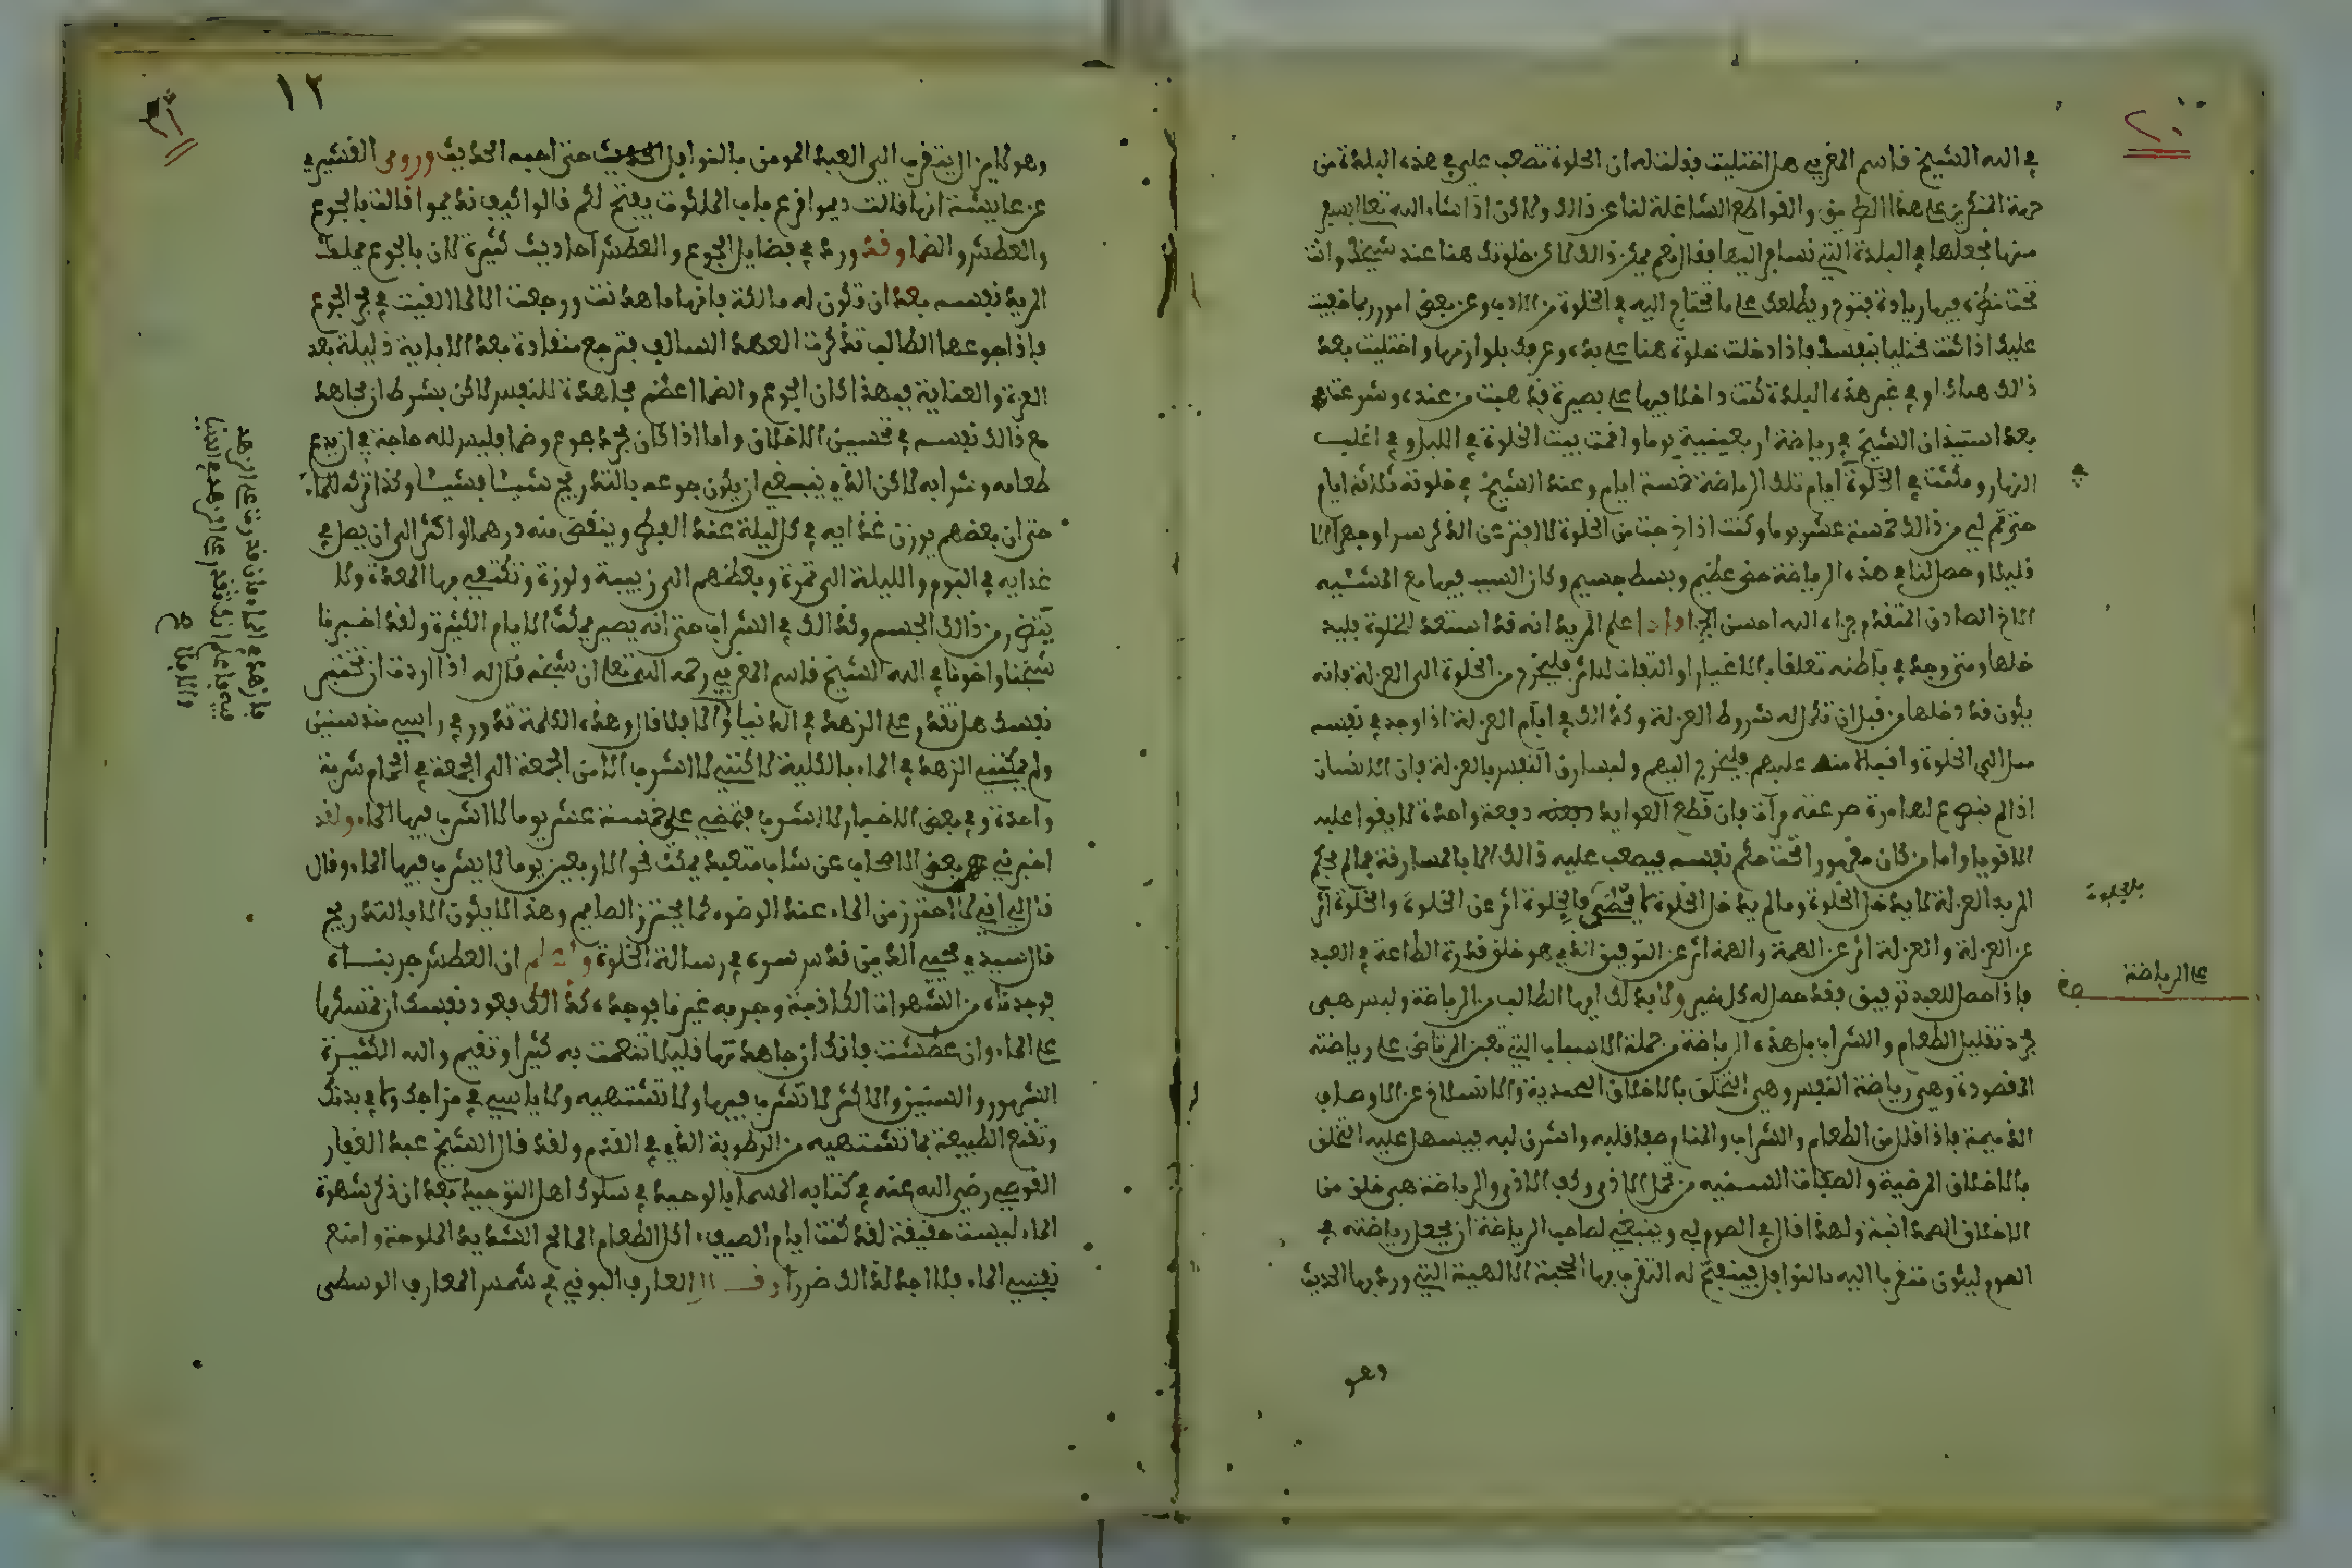 ٢٠
في الله الشيخ قاسم المغربي هل اختليت فقلت له ان الخلوة تصعب علي في هذه البلدة من
جهة المنكرين على هذا الطريق والقواطع الشاغلة لنا عن ذالك ولاكن اذا شاء الله تعالى بسفر
منها نجعلها في البلدة التي نسافر اليها فقال نعم يمكن ذالك لاكن خلوتك هنا عند شيخك وانت
تحت نظره فيها زيادة فتوح ويطلعك على ما تحتاج اليه في الخلوة من الادب وعن بعض امور ربما خفيت
عليك اذا كنت مختليا بنفسك فاذا دخلت خلوة هنا على يده وعرفك بلوازمها واختليت بعد
ذالك هناك او في غير هذه البلدة كنت داخلا فيها على بصيرة فذهبت من عنده وشرعت
بعد استيذان الشيخ في رياضة اربعينية يوما واقمت ببيت الخلوة في الليل وفي اغلب
النهار ومكثت في الخلوة ايام تلك الرياضة خمسة ايام وعند الشيخ في خلوته ثلاثة ايام
حتى تم لي من ذالك خمسة عشر يوما وكنت اذا خرجت من الخلوة لا افتر عن الذكر سرا وجهرا الا
قليلا وحصل لنا في هذه الرياضة حض عظيم وبسط جسيم وكان السبب فيها مع المشيه
الاخ الصادق المتقدم جزاه الله احسن الجزا واذا علم المريد انه قد استعد للخلوة فليد
خلها ومتى وجد في باطنه تعلقا بالاغيار او التفات لداثر فليخرج من الخلوة الى العزلة فانه
يكون قد دخلها من قبل ان تكمل له شروط العزلة وكذالك في ايام العزلة اذا وجد في نفسه
ميلا الى الخلوة واقبالا منه عليهم فليخرج اليهم وليسارق النفس بالعزلة فان الانسان
اذا لم ينصرع لها مرة صرعته مرات فان قطع العوايد دفعة واحدة لا يقوا عليه
الا قويا واما من كان مقهورا تحت حكم نفسه فيصعب عليه ذالك الا بالمسارقة فما لم يحكم
المريد العزلة لا يدخل الخلوة وما لم يدخل الخلوة لا يحضى بالجلوة اثر عن الخلوة والخلوة اثر
عن العزلة والعزلة اثر عن الهمة والهمة اثر عن التوفيق الذي هو خلق قدرة الطاعة في العبد
فاذا حصل للعبد توفيق فقد حصل له كل خير ولا بد لك ايها الطالب من الرياضة وليس هي
مجرد تقليل الطعام والشراب بل هذه الرياضة من جملة الاسباب التي تعين المرتاض على رياضته
المقصودة وهي رياضة النفس وهي التخلق بالاخلاق الحمدية والانسلاخ عن الاوصاف
الذميمة فاذا قلل من الطعام والشراب والمنام صفا قلبه واشرق لبه فيسهل عليه التخلق
بالاخلاق المرضية والصفات السنية من تحمل الاذى وكف الاذى والرياضة هي خلق من
الاخلاق الصمدانية ولهذا قال في الصوم لي وينبغي لصاحب الرياضة ان يجعل رياضته في
الصوم ليكون متقربا اليه بالنوافل فينفتح له التقرب بها المحبة الالهية التي ورد بها الحديث
وهو
بالجلوة
على الرياضة
١٢
٢١
وهو لا يزال يتقرب الي العبد المومن بالنوافل الحديث حتى احبه الحديث وروى القشيري
عن عايشة انها قالت ديموا قرع باب الملكوت يفتح لكم قالوا كيف نديموا قالت بالجوع
والعطش والضما وقد ورد في فضايل الجوع والعطش احاديث كثيرة لان بالجوع يملك
المريد نفسه بعد ان تكون له مالكة فانها ما هدنت ورجعت الا لما القيت في بحر الجوع
فاذا جوعها الطالب تذكرت العهد السالف فترجع منقادة بعد الاباية ذليلة بعد
العزة والعناية فبهذا كان الجوع والضما اعظم مجاهدة للنفس لاكن بشرط ان يجاهد
مع ذالك نفسه في تحسين الاخلاق واما اذا كان مجرد جوع وضما فليس لله حاجة في ان يدع
طعامه وشرابه لاكن الذي ينبغي ان يكون جوعه بالتدريج شيئا فشيئا وكذا تركه للماء
حتى ان بعضهم يوزن غذايه في كل ليلة عند الفطر وينقص منه درهما او اكثر الى ان يصل في
غدايه في اليوم والليلة الى تمرة وبعضهم الى زبيبة ولوزة وتكتفي بها المعدة ولا
يتضرر من ذالك الجسم وكذالك في الشراب حتى انه يصير يمكث الايام الكثيرة ولقد اخبرنا
شيخنا واخونا في الله الشيخ قاسم المغربي رحمه الله تعالى ان شيخه قال له اذا اردت ان تختبر
نفسك هل تقدر على الزهد في الدنيا والا فلا قال وهذه الكلمة تدور في راسي منذ سنين
ولم يمكنني الزهد في الماء بالكلية لاكنني لا اشرب الا من الجمعة الى الجمعة في الحمام شربة
واحدة وفي بعض الاحيان لا اشرب فتمضي علي خمسة عشر يوما لا اشرب فيها الماء ولقد
اخبرني بعض الاصحاب عن شاب متعبد يمكث نحو الاربعين يوما لا يشرب فيها الماء وقال
قال لي اني لا احترز من الماء عند الوضوء كما يحترز الصايم وهذا لا يكون الا بالتدريج
قال سيدي محيي الدين قدس سره في رسالة الخلوة واعلم ان العطش جربناه
فوجدناه من الشهوات الكاذبة وجربه غيرنا فوجده كذالك فعود نفسك ان تمسكها
على الماء وان عطشت فانك ان جاهدتها قليلا تنعمت به كثيرا وتقيم والله الكثيرة
الشهور والسنين والاكثر لا تشرب فيها ولا تشتهيه ولا ياسي في مزاجك ولا في بدنك
وتقنع الطبيعة بما تشتهيه من الرطوبة الذي في القدم ولقد قال الشيخ عبد الغفار
القوصي رضي الله عنه في كتابه المسما بالوحيد في سلوك اهل التوحيد بعد ان ذكر شهوة
الماء ليست حقيقة لقد كنت ايام الصيف اكل الطعام المالح الشديد الملوحة وامنع
نفسي الماء فلا اجد لذالك ضررا وقال العارف البوني في شمس المعارف الوسطى